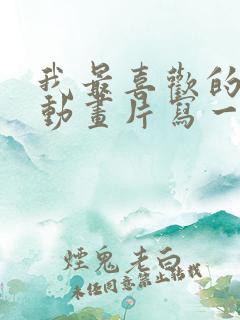 我最喜歡的
動畫片寫一
煙鬼老白
未任同意禁止轉載